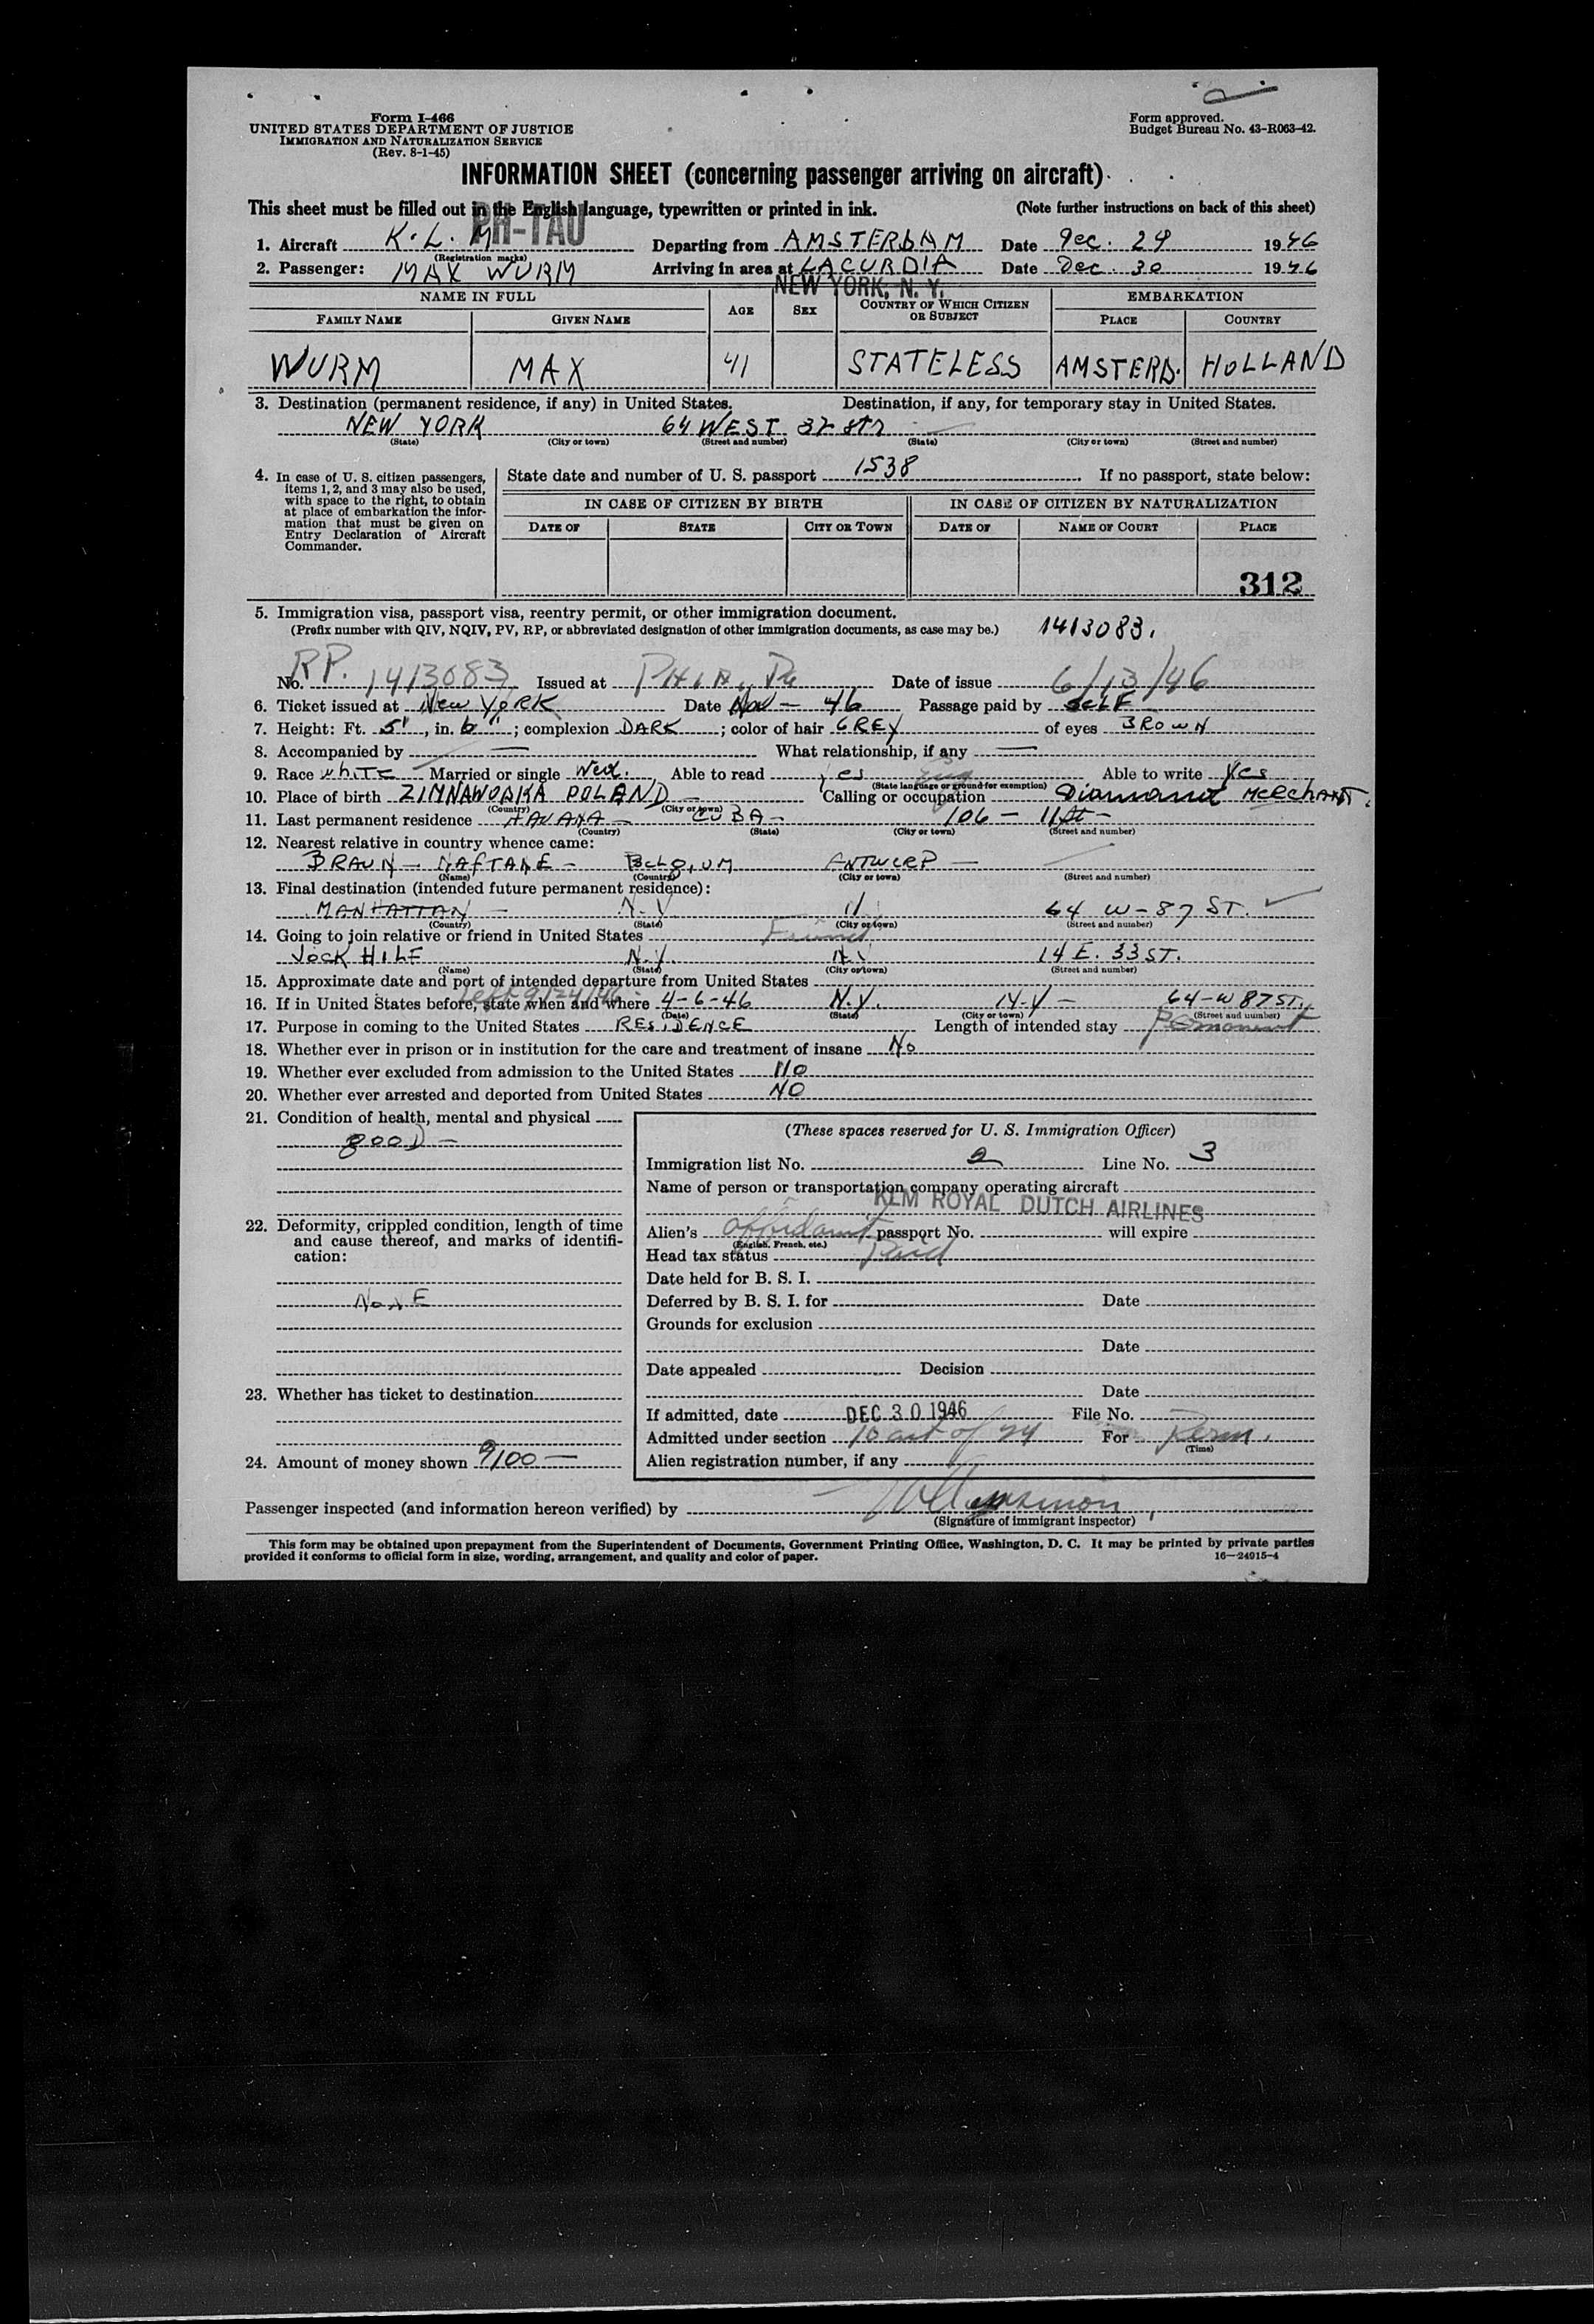 Form I-466
UNITED STATES DEPARTMENT OF JUSTICE
IMMIGRATION AND NATURALIZATION SERVICE
(Rev. 8-1-45)
Form approved.
Budget Bureau No. 43-R063-42.
INFORMATION SHEET (concerning passenger arriving on aircraft)
This sheet must be filled out in the English language, typewritten or printed in ink. (Note further instructions on back of this sheet)
PH-TAU
1. Aircraft K.L.M Departing from AMSTERDAM Date Dec. 29 1946
(Registration marks)
2. Passenger: MAX WURM Arriving in area at LAGURDIA Date Dec. 30 1946
NEW YORK, N. Y.
NAME IN FULL AGE SEX COUNTRY OF WHICH CITIZEN OR SUBJECT EMBARKATION
FAMILY NAME GIVEN NAME PLACE COUNTRY
WURM MAX 41 STATELESS AMSTERD. HOLLAND
3. Destination (permanent residence, if any) in United States. Destination, if any, for temporary stay in United States.
NEW YORK 64 WEST str
(State) (City or town) (Street and number) (State) (City or town) (Street and number)
4. In case of U. S. citizen passengers, items 1, 2, and 3 may also be used, with space to the right, to obtain at place of embarkation the information that must be given on Entry Declaration of Aircraft Commander.
State date and number of U. S. passport 1538 If no passport, state below:
IN CASE OF CITIZEN BY BIRTH IN CASE OF CITIZEN BY NATURALIZATION
DATE OF STATE CITY OR TOWN DATE OF NAME OF COURT PLACE
312
5. Immigration visa, passport visa, reentry permit, or other immigration document.
(Prefix number with QIV, NQIV, PV, RP, or abbreviated designation of other immigration documents, as case may be.) 1413083.
No. RP. 1413083 Issued at PHILA, Pa Date of issue 6/13/46
6. Ticket issued at New YORK Date Nov - 46 Passage paid by SELF
7. Height: Ft. 5', in. 6"; complexion DARK; color of hair GREY of eyes BROWN
8. Accompanied by — What relationship, if any —
9. Race WhITE Married or single Wed. Able to read yes Eng Able to write Yes
(State language or ground for exemption)
10. Place of birth ZIMNAWODKA POLAND — Calling or occupation Diamand MERCHANT.
(Country) (City or town)
11. Last permanent residence HAVANA — CUBA — 106 — 11 St —
(Country) (State) (City or town) (Street and number)
12. Nearest relative in country whence came:
BRAUN — NAFTANE — BELGIUM ANTWERP —
(Name) (Country) (City or town) (Street and number)
13. Final destination (intended future permanent residence):
MANHATTAN — N.Y. 11 64 W-87 ST.
(Country) (State) (City or town) (Street and number)
14. Going to join relative or friend in United States Friend
JOCK HILF N.Y. N.Y 14 E. 33 ST.
(Name) (State) (City or town) (Street and number)
15. Approximate date and port of intended departure from United States
Left 9/24/46
16. If in United States before, state when and where 4-6-46 N.Y. N.Y — 64-W 87 ST.
(Date) (State) (City or town) (Street and number)
17. Purpose in coming to the United States RESIDENCE Length of intended stay Permanent
18. Whether ever in prison or in institution for the care and treatment of insane No
19. Whether ever excluded from admission to the United States NO
20. Whether ever arrested and deported from United States NO
21. Condition of health, mental and physical
gooD —
22. Deformity, crippled condition, length of time and cause thereof, and marks of identification:
NoNE
23. Whether has ticket to destination
24. Amount of money shown 9100 —
(These spaces reserved for U. S. Immigration Officer)
Immigration list No. 2 Line No. 3
Name of person or transportation company operating aircraft
KLM ROYAL DUTCH AIRLINES
Alien's affidavit passport No. will expire
(English, French, etc.)
Head tax status Paid
Date held for B. S. I.
Deferred by B. S. I. for Date
Grounds for exclusion
Date
Date appealed Decision
Date
If admitted, date DEC 30 1946 File No.
Admitted under section 10 act of 24 For Perm.
(Time)
Alien registration number, if any
Passenger inspected (and information hereon verified) by
(Signature of immigrant inspector)
This form may be obtained upon prepayment from the Superintendent of Documents, Government Printing Office, Washington, D. C. It may be printed by private parties
provided it conforms to official form in size, wording, arrangement, and quality and color of paper. 16—24915-4